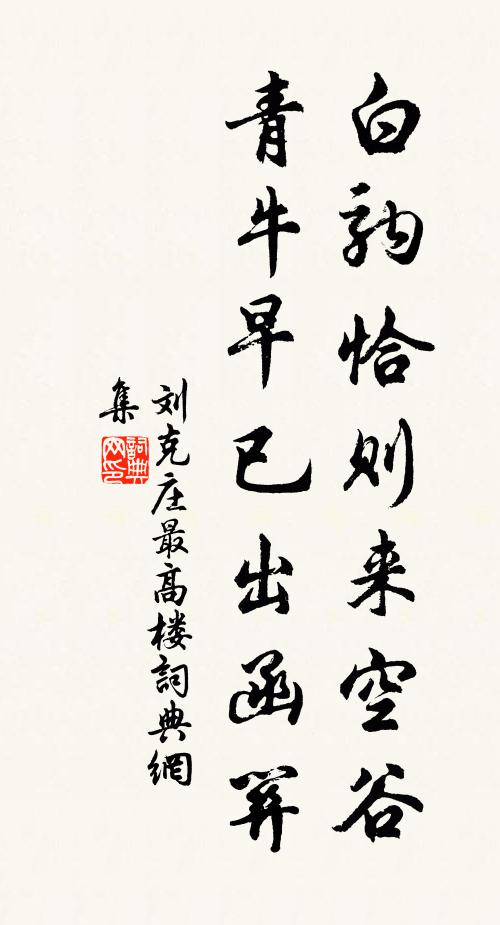 白驹恰则来空谷
青牛早已出函关
刘克庄最高楼詞典網
集
詞典网印